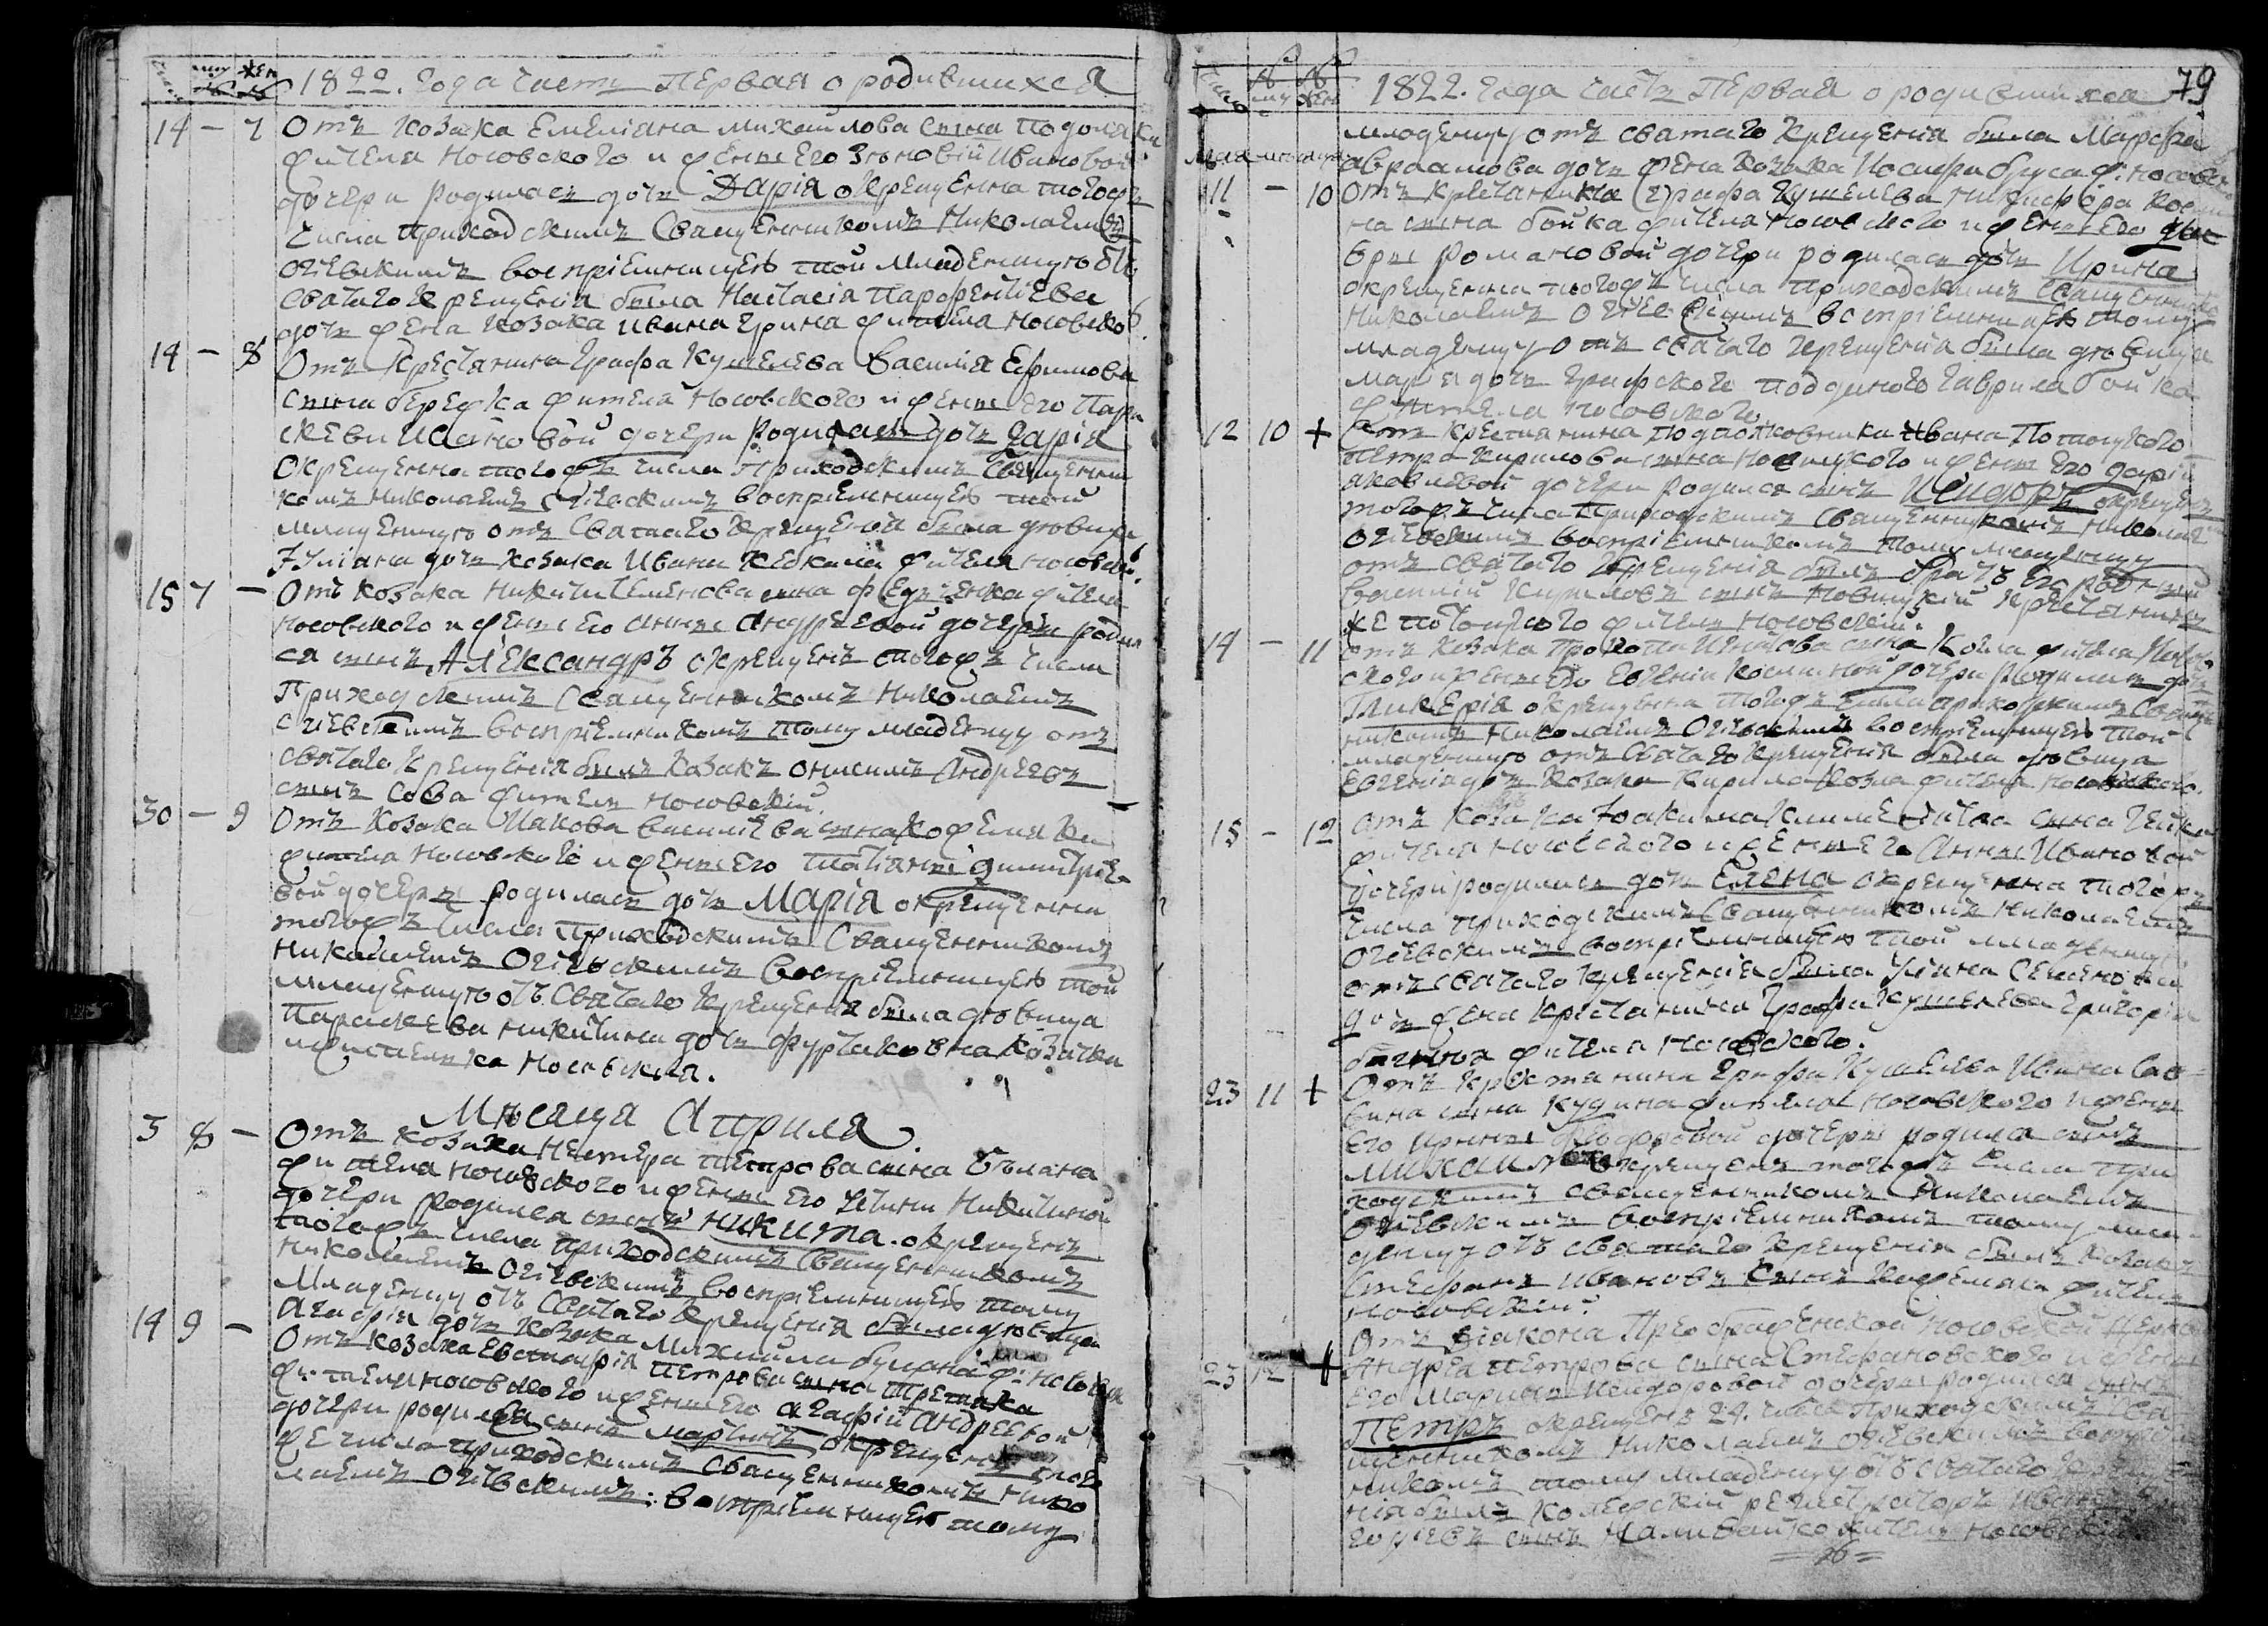 1822. года часть Первая о родившихся
14 - 7 Отъ козака Емелiана михайлова сына Подоляки
жителя Носовского и жены его Зѣновiи Ивановой
дочери родилась дочь Дарiя окрещенна тогожъ
числа Приходскимъ Священникомъ Николаемъ
Огiевскимъ воспрiемницею той младеницы отъ
Святаго крещенiя была Настасiя Парфентiева
дочь жена козака ивана грина жителя Носовско
14 - 8 Отъ крестянина графа Кушелева Василiя Ефимова
сына бережка жителя Носовского и жены его Пара
скевiи дочери родилась дочь дарiя
окрещенна тогожъ числа Приходскимъ священни
комъ николаемъ огiевскимъ воспрiемницею той
младеницы отъ Святаго крещенiя была дѣвица
Улiана дочь козака Ивана жителя носовск
15 7 - Отъ козака Никиты Семенова сына Федченка жителя
Носовского и жены его анны андреевой дочери родил
ся сынъ Александръ окрещенъ тогожъ числа
Приходскимъ Священникомъ Николаемъ
огiевскимъ воспрiемникомъ тому младенцу отъ
святаго крещенiя былъ козакъ онисимъ Андреевъ
сынъ Сова житель носовскiй
30 - 9 Отъ козака Иакова василiева сына кожемяки
жителя Носовского и жены его татiяны димитрiе
вой дочери родилась дочь Марiя окрещенна
тогожъ числа Приходскимъ Священникомъ
николаемъ Огiевскимъ воспрiемницею той
младеницы отъ Святаго крещенiя была дѣвица
Параскева никитина дочь козачка
жителька Носовская.
Мѣсяца Априля
5 8 - Отъ козака Нестера петрова сына булана
жителя носовского и жены его Никитиной
дочери родился сынъ никита. окрещенъ
тогожъ числа приходскимъ Священникомъ
николаемъ Огiевскимъ воспрiемницею тому
младенцу отъ Святаго крещенiя была дѣвица
Агафiя дочь козака Михайла булана ж: носовск
14 9 - Отъ козака Евстафiя петрова сына Третяка
жителя носовского и жены его агафiи Андреевой
дочери родился сынъ мартинъ окрещенъ того
же числа приходскимъ священникомъ Нико
лаемъ Огiевскимъ: воспрiемницею тому
79
1822. года часть Первая о родившихся
младенцу отъ святаго крещенiя была Марфа
авраамова дочь жена козака Иосифа бруса ж: носов
Мая
11 - 10 Отъ крестянина графа Кушелева Никифора
на сына бойка жителя Носовского и жены его
Романовой дочери родилась дочь Ирина
окрещенна тогожъ числа приходскимъ священникомъ
Николаемъ Огiевскимъ воспрiемницею тому
младенцу отъ святаго крещенiя была дѣвица
Марiя дочь графского подданого гаврила бойка
жителя носовского
12 10 + Отъ крестянина подполковника Ивана Потоцкого
петра кирилова сына новицкого и жены его дарiи
яковлевой дочери родился сынъ Исидоръ окрещенъ
тогожъ числа Приходскимъ священникомъ николае
огiевскимъ воспрiемникомъ тому младенцу
отъ святаго крещенiя былъ братъ его родный
василiй Кириловъ сынъ новицкiй крестянинъ
же потоцкого житель носовскiй.
14 - 11 отъ козака Прокопа сына Козла жителя Носов
ского и жены его Евгенiи дочери родилась дочь
Гликерiя окрещенна тогожъ числа приходскимъ свяще
никомъ Николаемъ Огiевскимъ воспрiемницею той
младеницы отъ Святаго крещенiя была дѣвица
Евгенiя дочь козака Кирила Козла жителя Носовского.
15 - 12 отъ козака Iоакима сына
жителя носовского и жены его Анны Ивановой
дочери родилась дочь Елена окрещенна тогожъ
числа приходскимъ Священникомъ Николаемъ
огiевскимъ воспрiемницею той младеницы
отъ святаго крещенiя была Улiяна Семенова
дочь жена крестянина графа кушелева григорiя
жителя носовского.
23 11 + Отъ крестянина графа Кушелева Ивана Сав
вина сына кудина жителя носовского и жены
его ирины Феодоровой дочери родился сынъ
михаилъ окрещенъ тогожъ числа при
ходскимъ священникомъ Николаемъ
Огiевскимъ воспрiемникомъ тому мла
денцу отъ святаго крещенiя былъ козакъ
Стефанъ ивановъ сынъ кожемяка житель
носовскiй.
23 12 + отъ дiакона Преображенской носовской церкви
Андрея петрова сына Стефановского и жены
его Марины Исидоровой дочери родился сынъ
Петръ окрещенъ 24. числа Приходскимъ свя
щенникомъ Николаемъ огiевскимъ воспрiем
никомъ тому младенцу отъ святаго креще
нiя былъ колежскiй регистраторъ иванъ
сынъ житель носовскiй